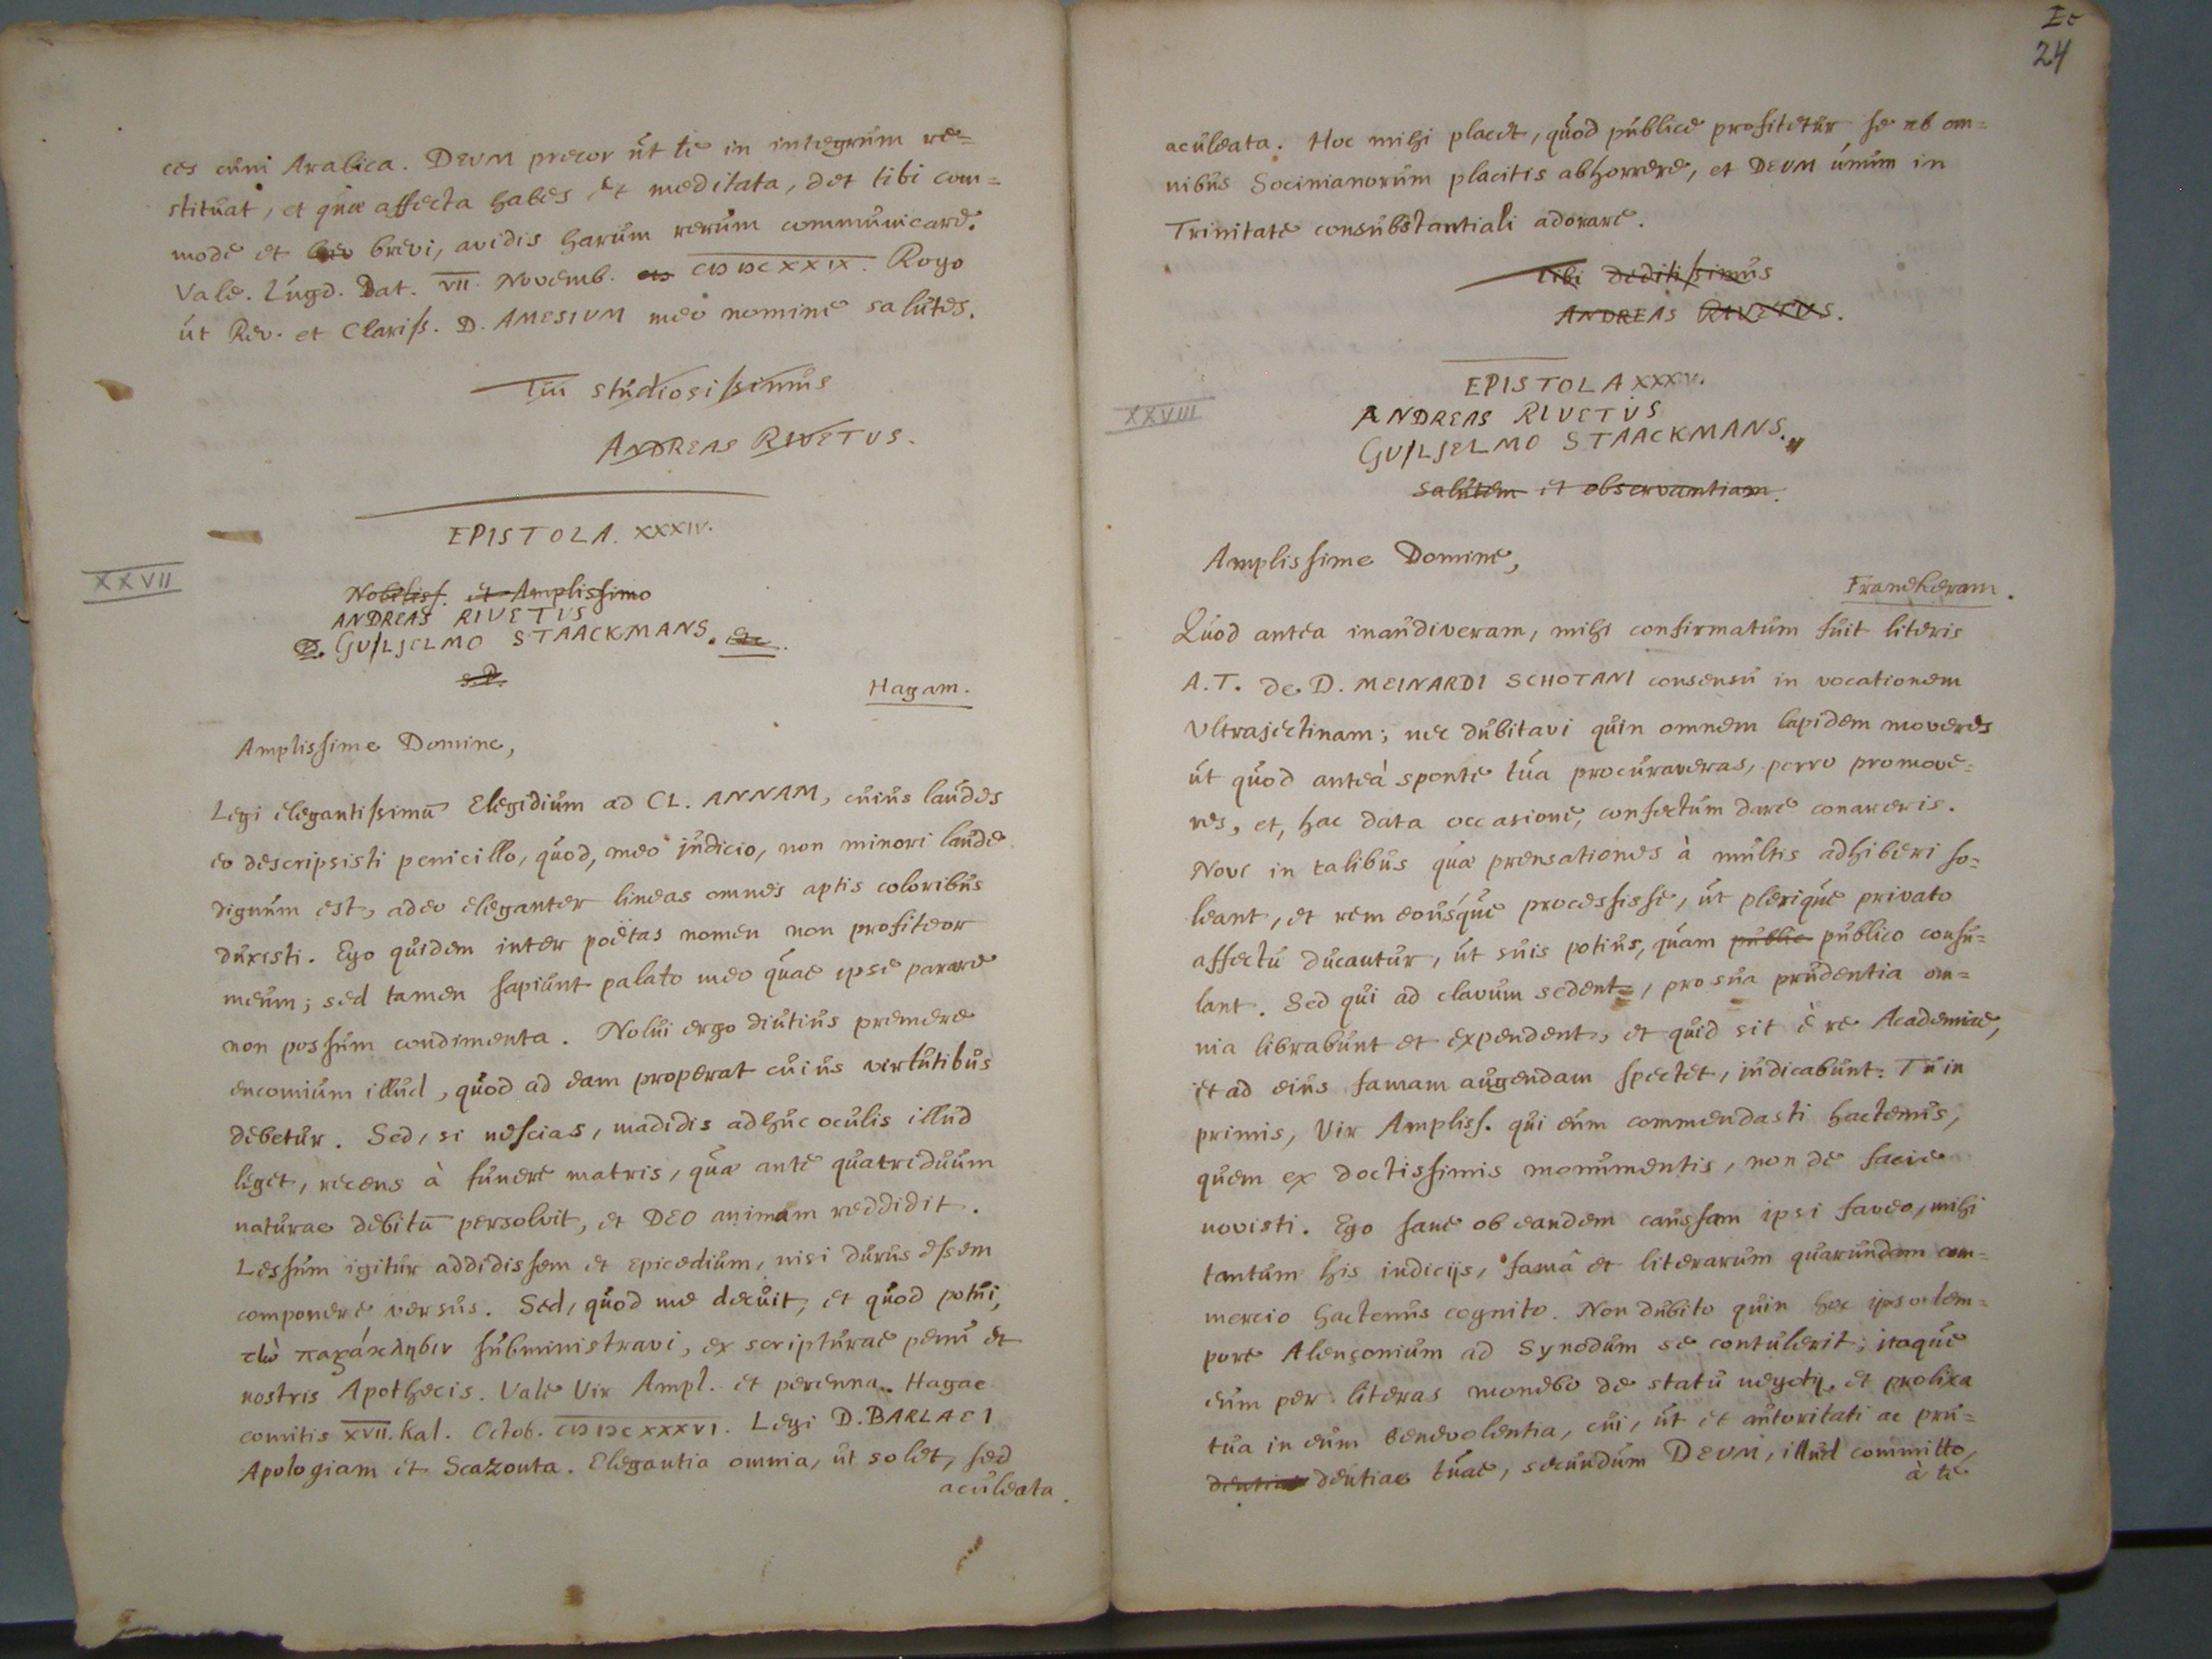 ces cum Arabica. DEUM precor ut te in integrum re=
stituat, et quae affecta habes et meditata, det tibi com=
mode et brevi, avidis harum rerum communicare.
Vale. Lugd. Bat. VII. Novemb. CIƆ IƆC XXIX. Rogo
ut Rev. et Clariss. D. AMESIUM meo nomine salutes.
Tui studiosissimus
ANDREAS RIVETUS.
EPISTOLA. XXXIV.
XXVII
Nobiliss. et Amplissimo
ANDREAS RIVETUS
D. GUILJELMO STAACKMANS.
S.P.
Hagam.
Amplissime Domine,
Legi elegantissimū Elegidium ad CL. ANNAM, cuius laudes
eo descripsisti penicillo, quod, meo judicio, non minori laude
dignum est, adeo eleganter lineas omnes aptis coloribus
duxisti. Ego quidem inter poëtas nomen non profiteor
meum; sed tamen sapiunt palato meo quae ipse parare
non possum condimenta. Nolui ergo diutius premere
encomium illud, quod ad eam properat cuius virtutibus
debetur. Sed, si nescias, madidis adhuc oculis illud
leget, recens à funere matris, quae ante quatriduum
naturae debitū persolvit, et DEO animam reddidit.
Lessum igitur addidissem et Epicedium, nisi durus essem
componere versus. Sed, quod me decuit, et quod potui,
τὼ παράκλησιν subministravi, ex scripturae penu et
nostris Apothecis. Vale Vir Ampl. et perenna. Hagae
comitis XVII. Kal. Octob. CIƆ IƆC XXXVI. Legi D. BARLAEI
Apologiam et Scazonta. Elegantia omnia, ut solet, sed
aculeata.
Ec
24
aculeata. Hoc mihi placet, quod publice profitetur se ab om=
nibus Socinianorum placitis abhorrere, et DEUM unum in
Trinitate consubstantiali adorare.
Tibi deditissimus
ANDREAS RIVETUS.
EPISTOLA XXXV.
XXVIII
ANDREAS RIVETUS
GUILJELMO STAACKMANS.
salutem et observantiam.
Amplissime Domine,
Franekeram.
Quod antea inaudiveram, mihi confirmatum fuit literis
A.T. de D. MEINARDI SCHOTANI consensu in vocationem
Ultrajectinam; nec dubitavi quin omnem lapidem moveres
ut quod anteà sponte tua procuraveras, porro promove=
res, et, hac data occasione, confectum dare conareris.
Novi in talibus quae prensationes à multis adhiberi so=
leant, et rem eousque processisse, ut plerique privato
affectu ducantur, ut suis potius, quam public publico consu=
lant. Sed qui ad clavum sedent, pro sua prudentia om=
nia librabunt et expendent, et quid sit è re Academiae,
et ad eius famam augendam spectet, judicabunt: Tu in
primis, Vir Ampliss. qui eum commendasti hactenus,
quem ex doctissimis monumentis, non de facie
novisti. Ego sane ob eandem caussam ipsi faveo, mihi
tantum his indicijs, famâ et literarum quarundam com=
mercio hactenus cognito. Non dubito quin hoc ipso tem=
pore Alençonium ad Synodum se contulerit; itaque
eum per literas monebo de statu negotij, et prolixa
tua in eum benevolentia, cui, ut et autoritati ac pru=
dentiae dentiae tuae, secundum DEUM, illud committo,
à te